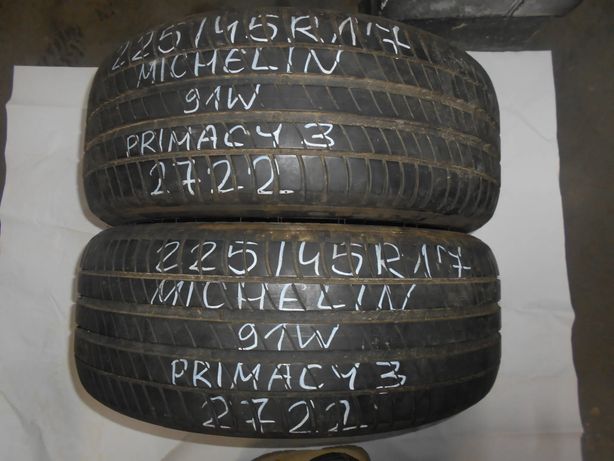 225/45R17
MICHELIN
91W
PRIMACY 3
2722
225/45R17
MICHELIN
91W
PRIMACY 3
2722